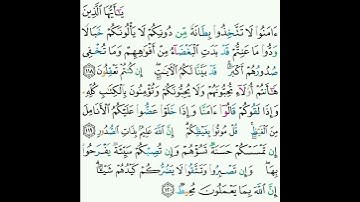 يَـٰٓأَيُّهَا ٱلَّذِينَ
ءَامَنُوا۟ لَا تَتَّخِذُوا۟ بِطَانَةً مِّن دُونِكُمْ لَا يَأْلُونَكُمْ خَبَالًا
وَدُّوا۟ مَا عَنِتُّمْ قَدْ بَدَتِ ٱلْبَغْضَآءُ مِنْ أَفْوَٰهِهِمْ وَمَا تُخْفِى
صُدُورُهُمْ أَكْبَرُ ۚ قَدْ بَيَّنَّا لَكُمُ ٱلْـَٔايَـٰتِ ۖ إِن كُنتُمْ تَعْقِلُونَ ١١٨
هَـٰٓأَنتُمْ أُو۟لَآءِ تُحِبُّونَهُمْ وَلَا يُحِبُّونَكُمْ وَتُؤْمِنُونَ بِٱلْكِتَـٰبِ كُلِّهِۦ
وَإِذَا لَقُوكُمْ قَالُوٓا۟ ءَامَنَّا وَإِذَا خَلَوْا۟ عَضُّوا۟ عَلَيْكُمُ ٱلْأَنَامِلَ
مِنَ ٱلْغَيْظِ ۚ قُلْ مُوتُوا۟ بِغَيْظِكُمْ ۗ إِنَّ ٱللَّهَ عَلِيمٌۢ بِذَاتِ ٱلصُّدُورِ ١١٩
إِن تَمْسَسْكُمْ حَسَنَةٌ تَسُؤْهُمْ وَإِن تُصِبْكُمْ سَيِّئَةٌ يَفْرَحُوا۟
بِهَا ۖ وَإِن تَصْبِرُوا۟ وَتَتَّقُوا۟ لَا يَضُرُّكُمْ كَيْدُهُمْ شَيْـًٔا ۗ
إِنَّ ٱللَّهَ بِمَا يَعْمَلُونَ مُحِيطٌ ١٢٠